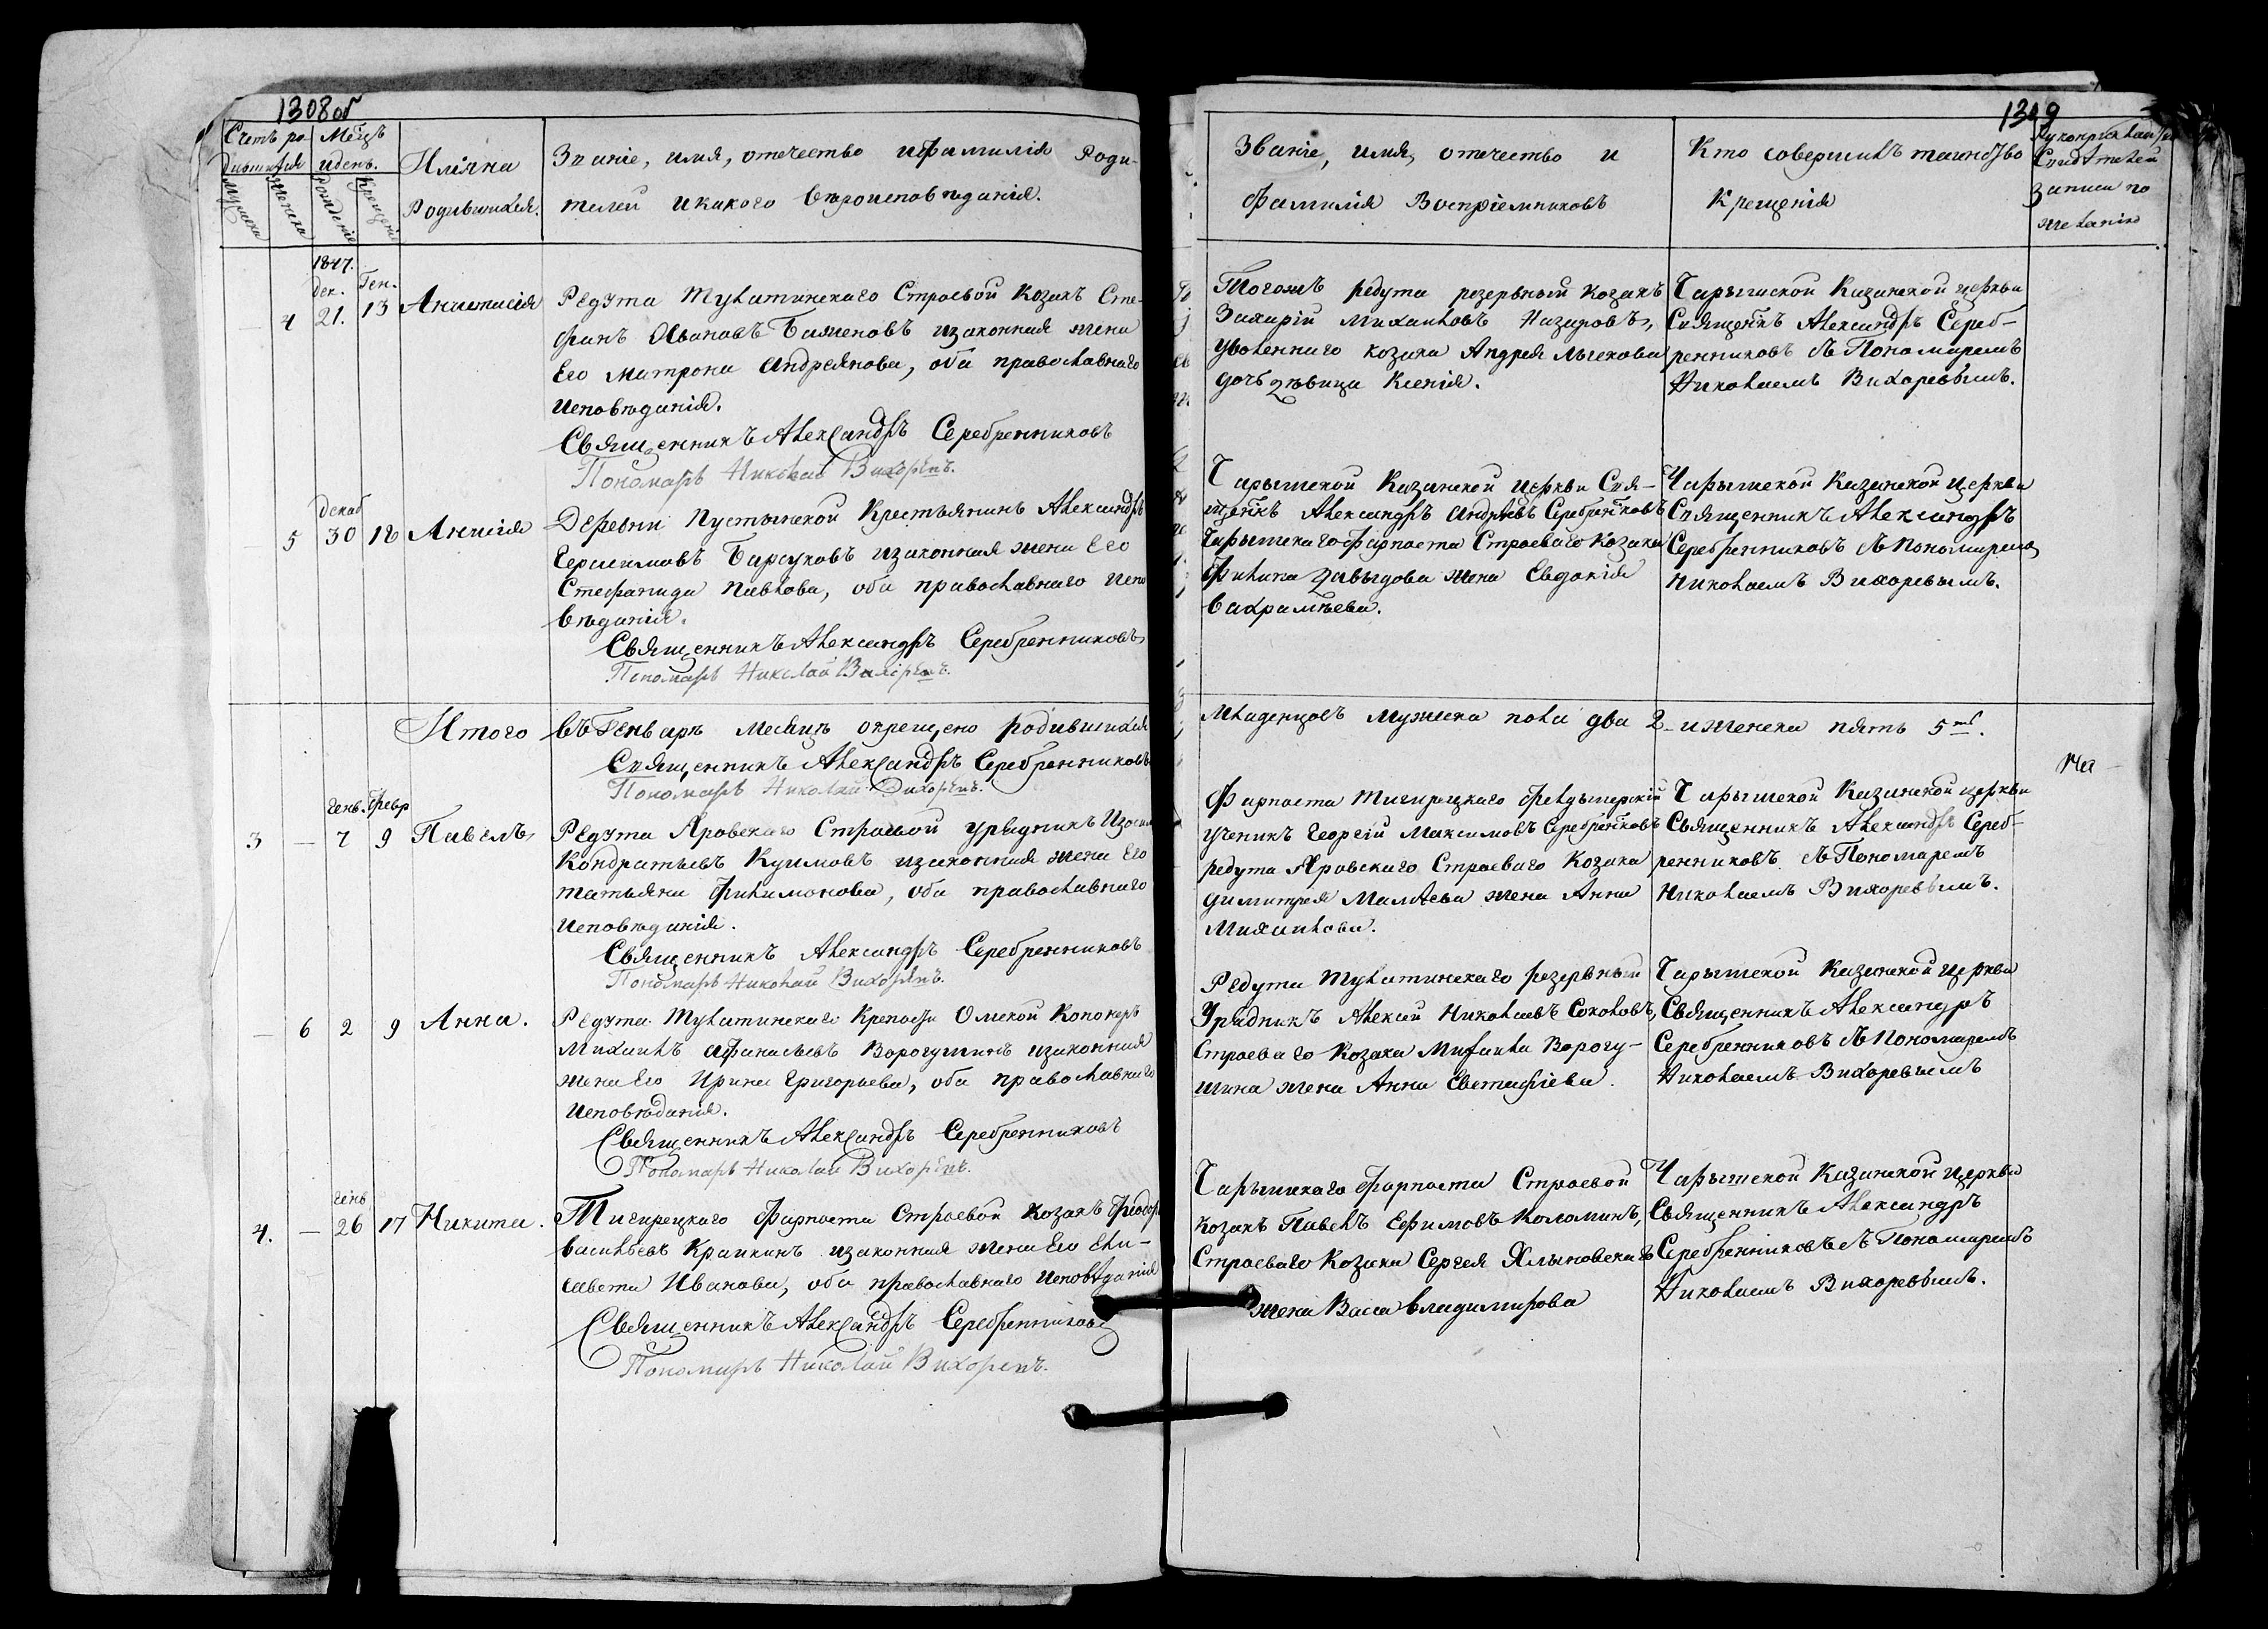 1308об
Счетъ ро-
дившихся
Мѣсцъ
и день.
Мужска
Женска
Рожденіе
Крещеніе
Имяна
Родившихся.
Званіе, имя, отечество и фамилія Роди-
телей и какого вѣроисповѣданія.
1847.
дек. Ген.
4 21. 13 Анастасія
Редута Тулатинскаго Строевой Козакъ Сте-
фанъ Ивановъ Баженовъ и законная жена
Его Матрона Андреянова, оба православнаго
исповѣданія.
Священникъ Александръ Серебренниковъ
Пономарь Николай Вихоревъ.
декаб
5 30 18 Анисія
Деревни Пустынской Крестьянинъ Александръ
Герасимовъ Барсуковъ и законная жена Его
Стефанида Павлова, оба православнаго испо
вѣданія.
Священникъ Александръ Серебренниковъ
Пономарь Николай Вихоревъ.
Итого въ Генварѣ месяцѣ окрещено родившихся
Священникъ Александръ Серебренниковъ
Пономарь Николай Вихоревъ.
генв. февр
3 — 7 9 Павелъ
Редута Яровскаго Строевой урядникъ
Кондратьевъ Куимовъ и законная жена Его
татьяна Филимонова, оба православнаго
исповѣданія.
Священникъ Александръ Серебренниковъ
Пономарь Николай Вихоревъ.
— 6 2 9 Анна.
Редута Тулатинскаго Крепости Омской Канонеръ
Михаилъ Афанасьевъ Ворогушинъ и законная
жена Его Ирина Григорьева, оба православнаго
исповѣданія.
Священникъ Александръ Серебренниковъ
Пономарь Николай Вихоревъ.
генв
4. — 26 17 Никита.
Тигирецкаго Форпоста Строевой Козакъ Феодор
васильевъ Крапкинъ и законная жена Его Ели-
савета Иванова, оба православнаго исповѣданія
Священникъ Александръ Серебренниковъ
Пономарь Николай Вихоревъ.
1309
Званіе, имя, отечество и
Фамилія Воспріемниковъ
Кто совершилъ таинство
Крещенія
Рукоприкладство
Свидѣтелей
записи по
желанію
Тогожъ редута резервный козакъ
Захарій Михаиловъ Назаровъ,
уволеннаго козака Андрея Лыскова
дочь девица Ксенія.
Чарышской Казанской церкви
Священикъ Александръ Сереб-
ренниковъ съ Пономаремъ
Николаемъ Вихоревымъ.
Чарышской Казанской Церкви Свя-
щеникъ Александръ Андреевъ Серебрениковъ
Чарышскаго Фарпоста Строеваго Козака
Филипа Давыдова жена Евдокія
Вахрамѣева.
Чарышской Казанской церкви
Священникъ Александръ
Серебренниковъ съ Пономаремъ
Николаемъ Вихоревымъ.
Младенцовъ мужска пола два 2 и женска пять 5ть.
Фарпоста Тигирецкаго Фельдшерскій
ученикъ Георгій Максимовъ Серебрениковъ
редута Яровскаго Строеваго Козака
димитрея жена Анна
Михаилова.
Чарышской Казанской церкви
Священникъ Александръ Сереб-
ренниковъ съ Пономаремъ
Николаемъ Вихоревымъ.
Редута Тулатинскаго резервный
Урядникъ Алексей Николаевъ Соколовъ,
Строеваго Козака Михаила Ворогу-
шина жена Анна Евстафіева.
Чарышской Казанской церкви
Священникъ Александръ
Серебренниковъ съ Пономаремъ
Николаемъ Вихоревымъ
Чарышскаго Форпоста Строевой
козакъ Павелъ Ефимовъ Коломинъ,
Строеваго Козака Сергея Хлыновскаго
жена Васса владимирова
Чарышской Казанской Церкви
Священникъ Александръ
Серебренниковъ съ Пономаремъ
Николаемъ Вихоревымъ.